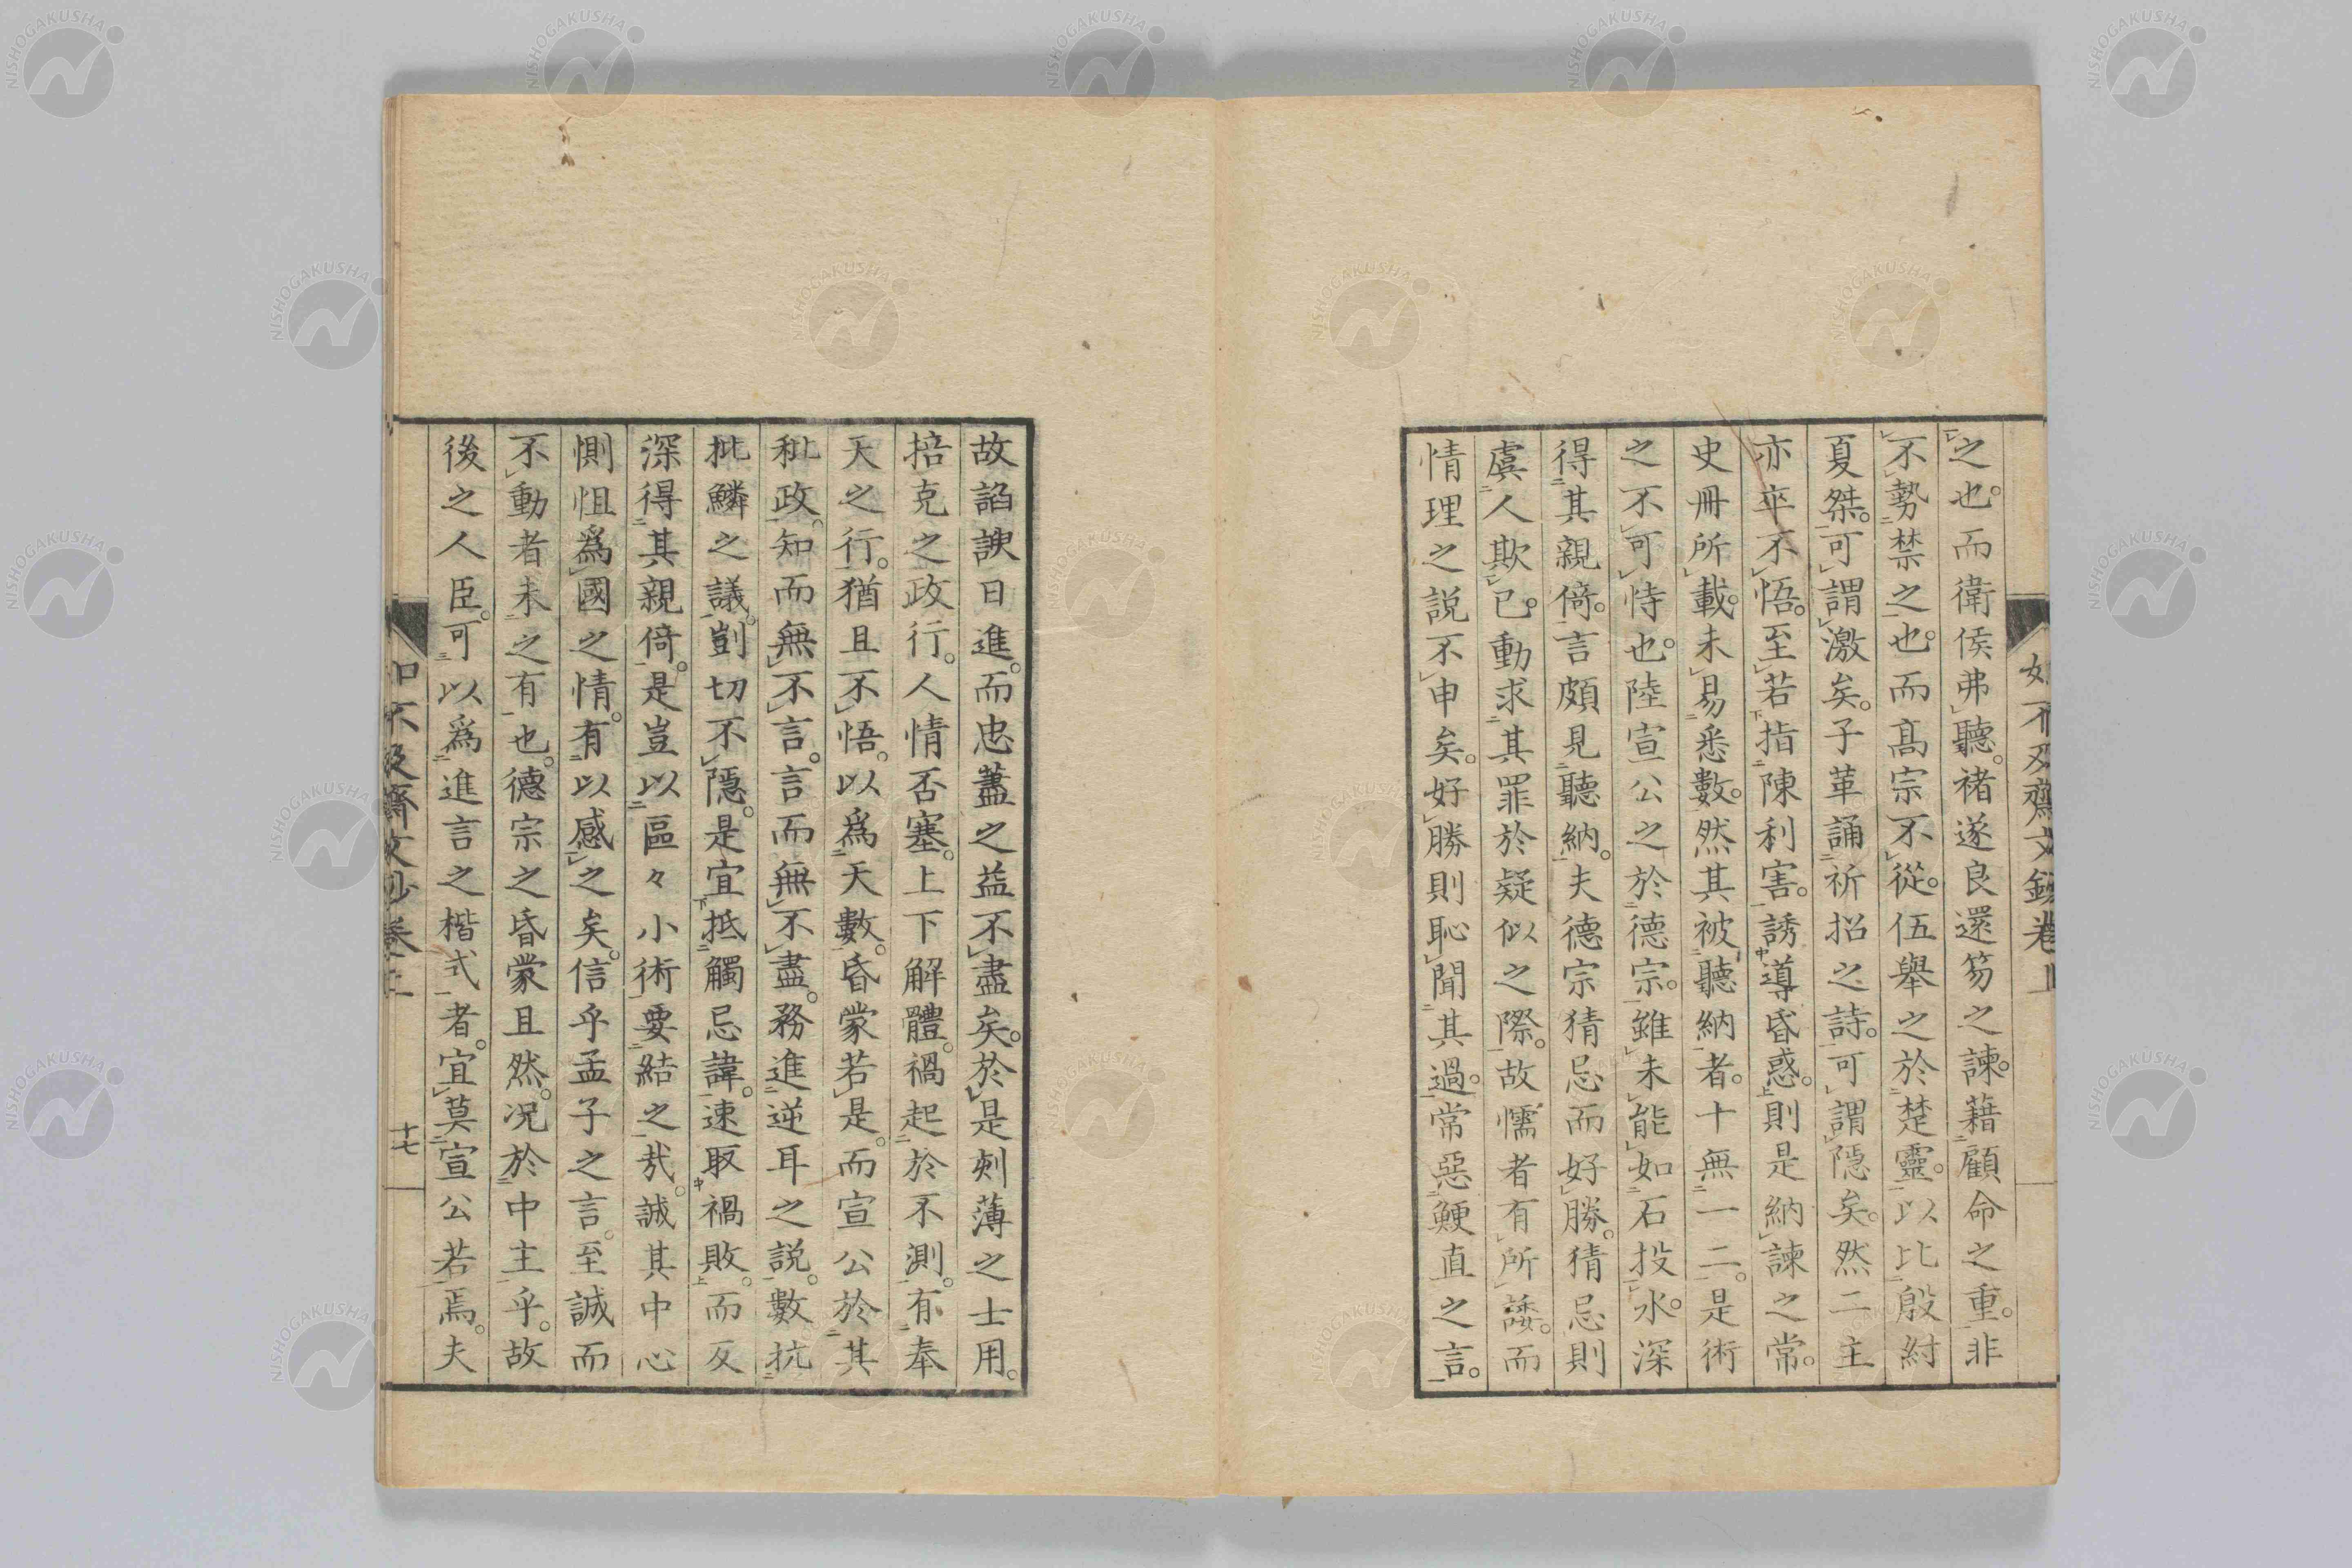 之也。而衛侯弗聽。褚遂良還笏之諫。藉顧命之重。非
不勢禁之也。而高宗不從。伍舉之於楚靈。以比殷紂
夏桀。可謂激矣。子革誦祈招之詩。可謂隱矣。然二主
亦卒不悟。至若指陳利害。誘導昏惑。則是納諫之常。
史冊所載。未易悉數。然其被聽納者。十無一二。是術
之不可恃也。陸宣公之於德宗。雖未能如石投水。深
得其親倚。言頗見聽納。夫德宗猜忌而好勝。猜忌則
虞人欺已。動求其罪於疑似之際。故懦者有所諉。而
情理之說不申矣。好勝則恥聞其過。常惡鯁直之言。
如不及齋文鈔卷上
故諂諛日進。而忠藎之益不盡矣。於是刻薄之士用。
掊克之政行。人情否塞。上下解體。禍起於不測。有奉
天之行。猶且不悟。以爲天數。昏蒙若是。而宣公於其
秕政。知而無不言。言而無不盡。務進逆耳之說。數抗
批鱗之議。剴切不隱。是宜抵觸忌諱。速取禍敗。而反
深得其親倚。是豈以區々小術要結之哉。誠其中心
惻怛爲國之情。有以感之矣。信乎孟子之言。至誠而
不動者未之有也。德宗之昏蒙且然。况於中主乎。故
後之人臣。可以爲進言之楷式者。宜莫宣公若焉。夫
如不及齋文鈔卷上
十七
NISHOGAKUSHA